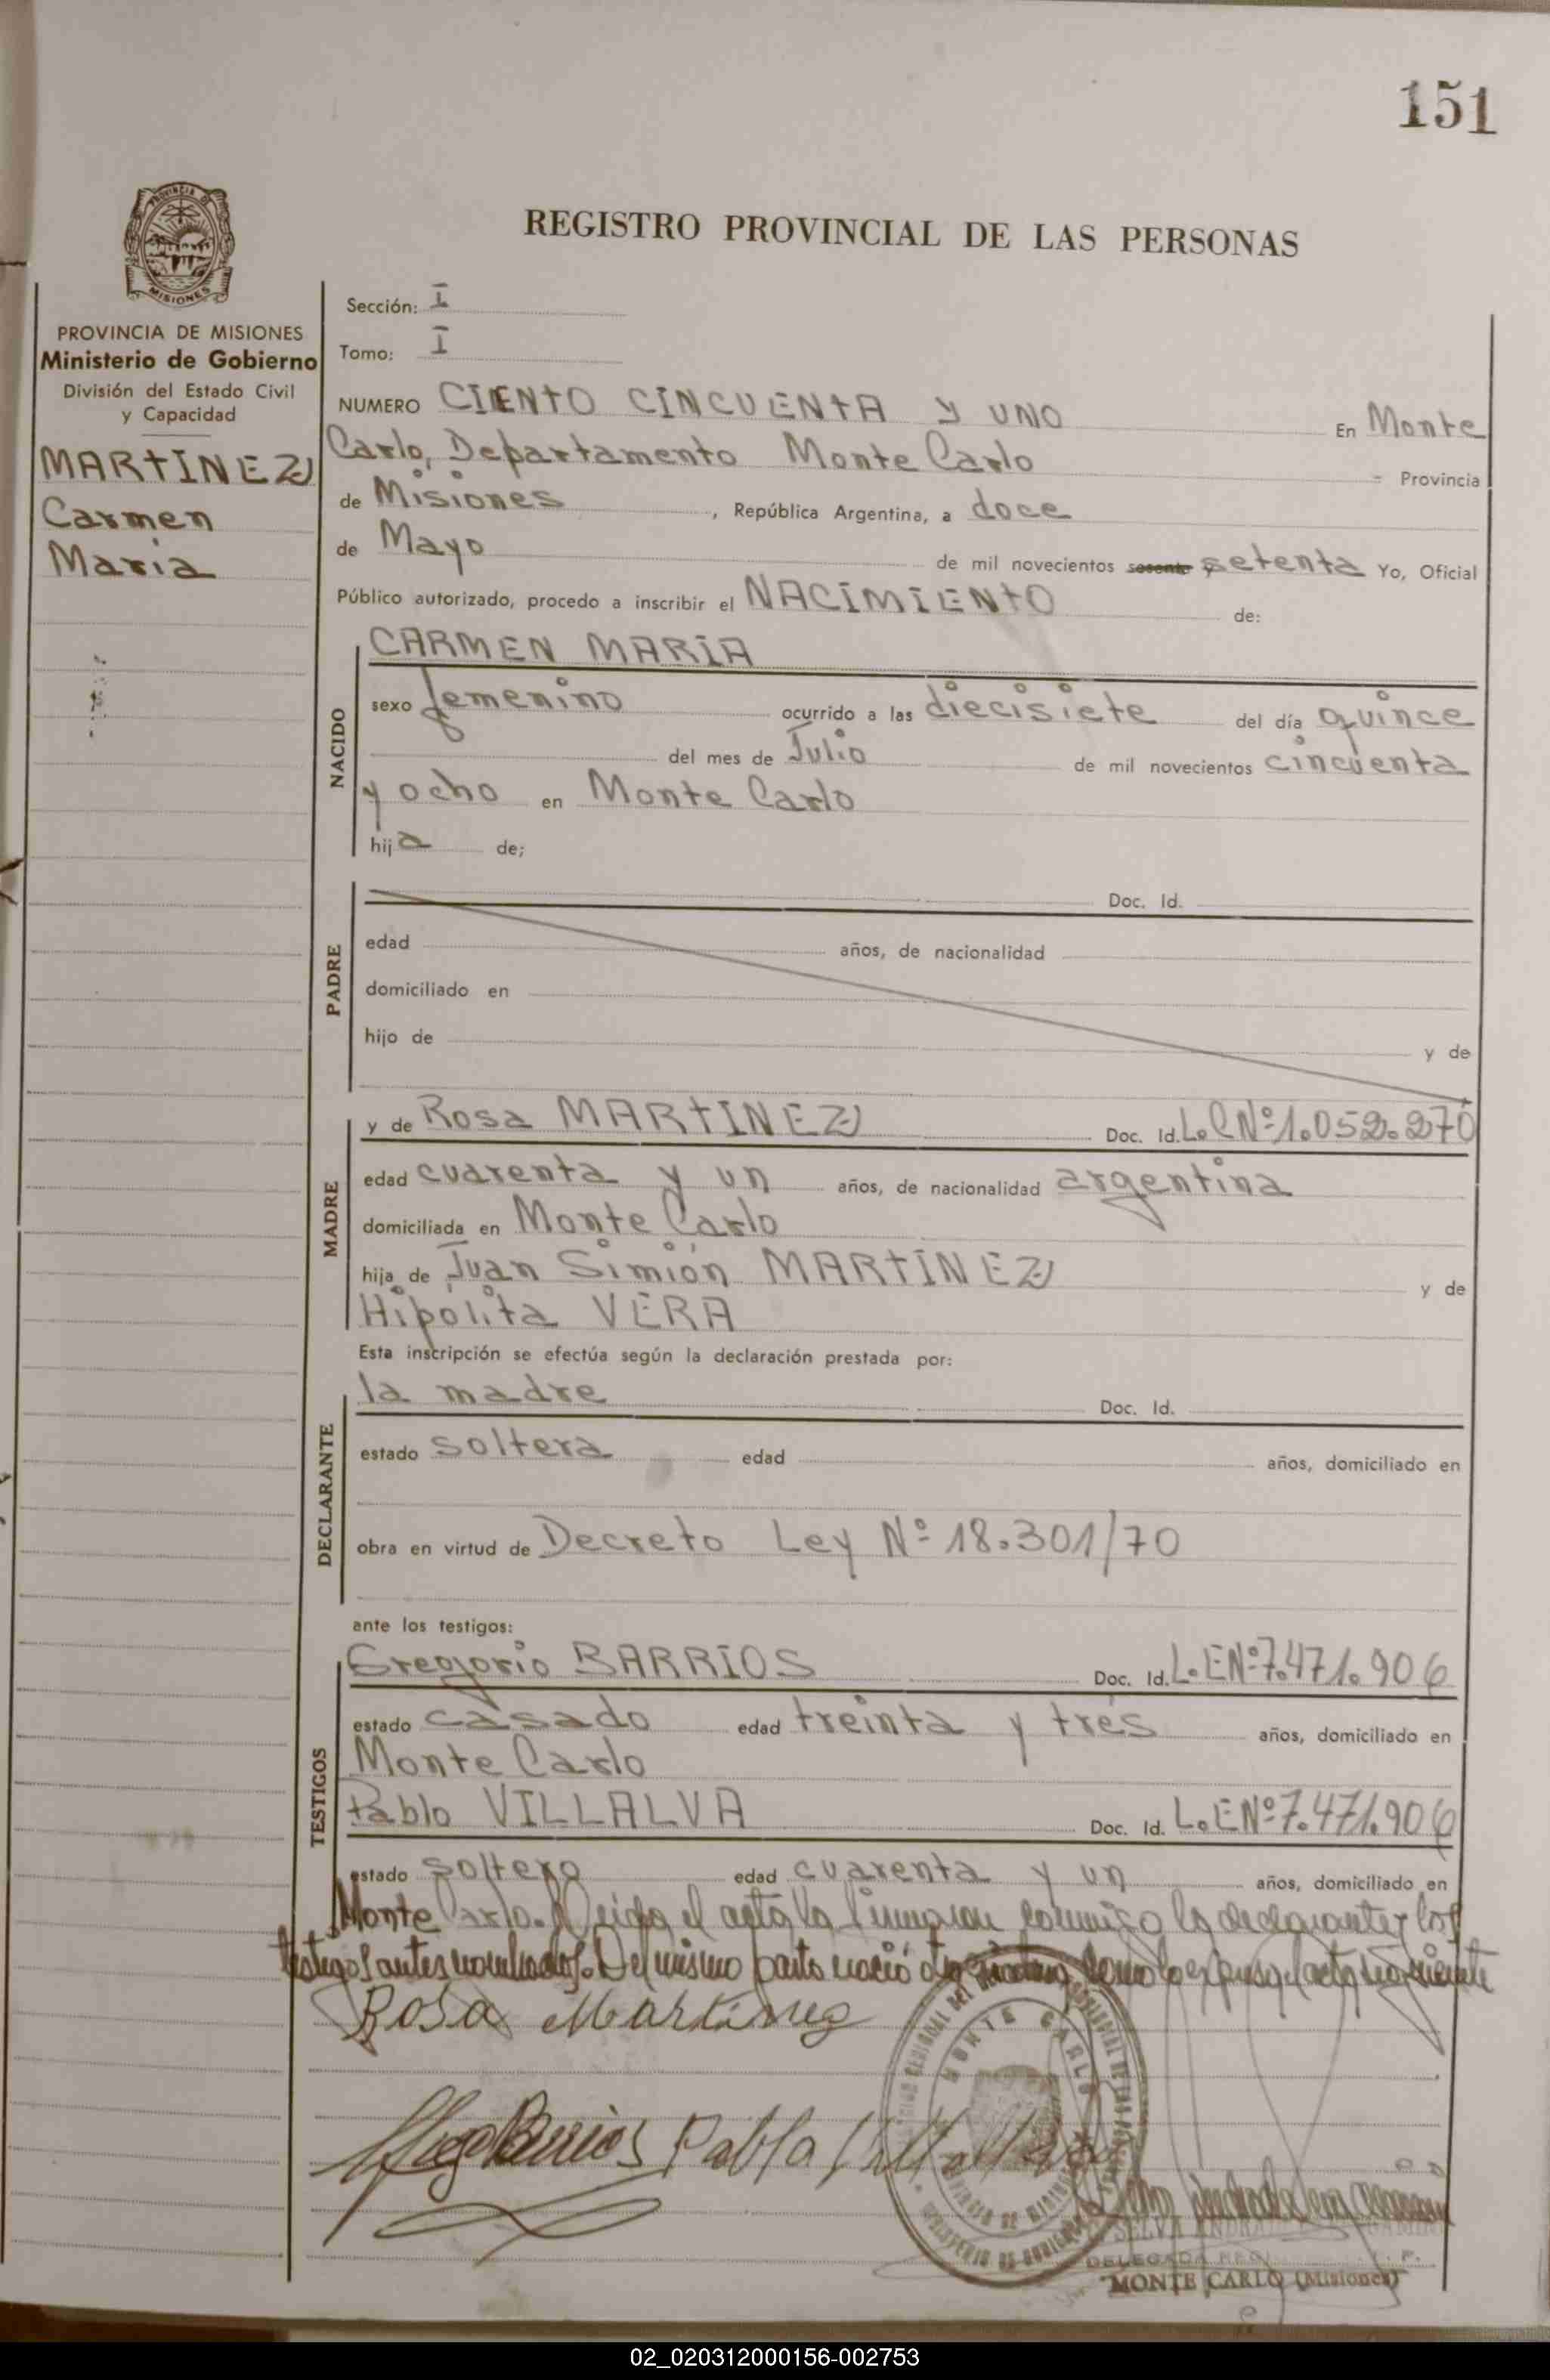 151
PROVINCIA DE
MISIONES
REGISTRO PROVINCIAL DE LAS PERSONAS
PROVINCIA DE MISIONES
Ministerio de Gobierno
División del Estado Civil
y Capacidad
MARTINEZ
Carmen
Maria
Sección: I
Tomo: I
NUMERO CIENTO CINCUENTA Y UNO En Monte
Carlo, Departamento Monte Carlo Provincia
de Misiones, República Argentina, a doce
de Mayo de mil novecientos sesenta setenta Yo, Oficial
Público autorizado, procedo a inscribir el NACIMIENTO de:
NACIDO
CARMEN MARIA
sexo femenino ocurrido a las diecisiete del día quince
del mes de Julio de mil novecientos cincuenta
y ocho en Monte Carlo
hija de;
PADRE
Doc. Id.
edad años, de nacionalidad
domiciliado en
hijo de y de
MADRE
y de Rosa MARTINEZ Doc. Id. L.C Nº 1.052.270
edad cuarenta y un años, de nacionalidad argentina
domiciliada en Monte Carlo
hija de Juan Simión MARTINEZ y de
Hipólita VERA
Esta inscripción se efectúa según la declaración prestada por:
DECLARANTE
la madre Doc. Id.
estado soltera edad años, domiciliado en
obra en virtud de Decreto Ley Nº 18.301/70
ante los testigos:
TESTIGOS
Gregorio BARRIOS Doc. Id. L.E Nº 7.471.906
estado casado edad treinta y tres años, domiciliado en
Monte Carlo
Pablo VILLALVA Doc. Id. L.E Nº 7.471.906
estado soltero edad cuarenta y un años, domiciliado en
Monte Carlo. Leida el acta la firmaron conmigo la declarante y los
testigos antes nombrados. Del mismo parto nació como lo expresa el acta siguiente
Rosa Martinez
Barrios Pablo Villalva
MONTE CARLO
SELVA
DELEGADA
MONTE CARLO (Misiones)
02_020312000156-002753